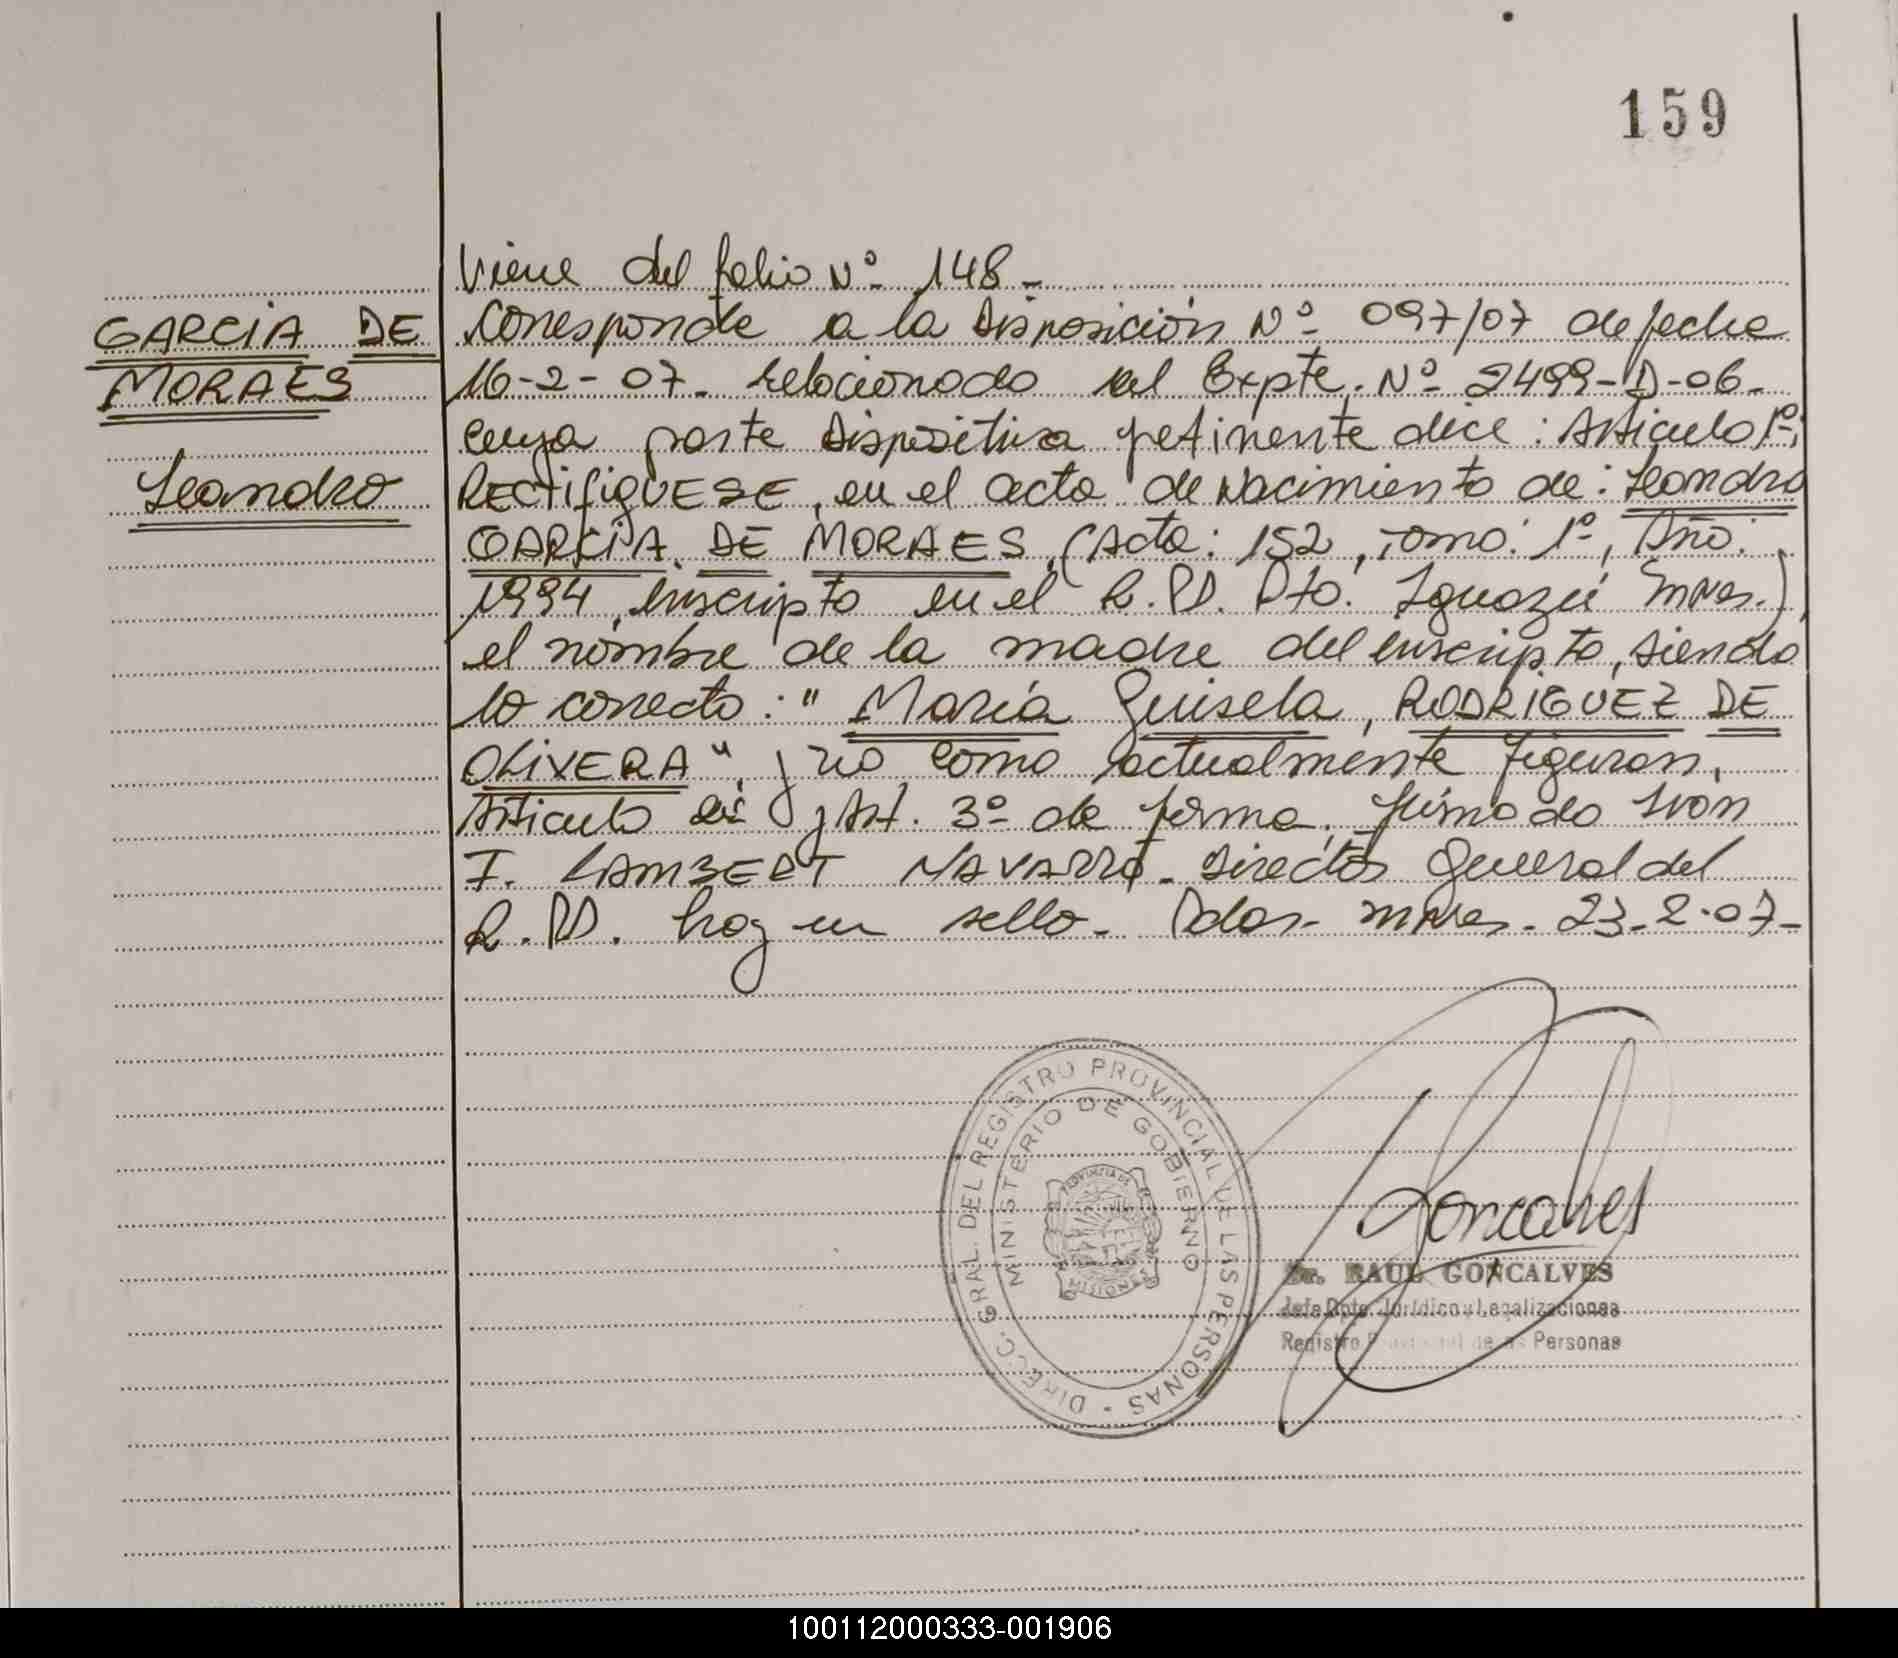 159
Viene del folio Nº 148 -
GARCIA DE
MORAES
Leandro
Corresponde a la Disposición Nº 097/07 de fecha
16-2-07. relacionado al Expte. Nº 2499-D-06-
cuya parte Dispositiva pertinente dice: Articulo 1º;
RECTIFIQUESE, en el acta de Nacimiento de: Leandro
GARCIA DE MORAES (Acta: 152, Tomo: 1º, Año:
1994, inscripto en el R.P.P. Dto. Iguazú Mnes.)
el nombre de la madre del inscripto, siendo
lo correcto: " María Guisela, RODRIGUEZ DE
OLIVERA", y no como actualmente figuran,
Articulo y Art. 3º de forma. Firmado Iván
I. LAMBERT NAVARRO. Director General del
R.P.P. hay un sello. Pdas. Mnes. 23-2-07-
DIRECC. GRAL. DEL REGISTRO PROVINCIAL DE LAS PERSONAS -
MINISTERIO DE GOBIERNO
PROVINCIA DE
MISIONES
Goncalves
Dr. RAUL GONCALVES
Jefe Dpto. Jurídico y Legalizaciones
Registro Provincial de las Personas
100112000333-001906